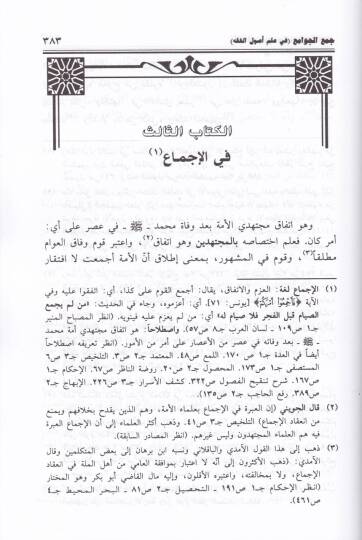 جمع الجوامع (في علم أصول الفقه)
٣٨٣
الكتاب الثالث
في الإجماع (١)
وهو اتفاق مجتهدي الأمة بعد وفاة محمد ـ ﷺ ـ في عصر على أي:
أمر كان. فعلم اختصاصه بالمجتهدين وهو اتفاق(٢)، واعتبر قوم وفاق العوام
مطلقاً(٣)، وقوم في المشهور، بمعنى إطلاق أنّ الأمة أجمعت لا افتقار
(١) الإجماع لغة: العزم والاتفاق، يقال: أجمع القوم على كذا، أي: اتفقوا عليه وفي
الآية ﴿فَأَجْمِعُوا أَمْرَكُمْ﴾ [يونس: ٧١]. أي: أعزموه، وجاء في الحديث: «من لم يجمع
الصيام قبل الفجر فلا صيام له» أي: من لم يعزم عليه فينويه. (انظر المصباح المنير
جـ١ ص١٠٩ ـ لسان العرب جـ٨ ص٥٧). واصطلاحاً: هو اتفاق مجتهدي أمة محمد
ـ ﷺ ـ بعد وفاته في عصر من الأعصار على أمر من الأمور. (انظر تعريفه اصطلاحاً
أيضاً في العدة جـ١ ص١٧٠. اللمع ص٤٨. المعتمد جـ٢ ص٣. التلخيص جـ٣ ص٦
المستصفى جـ١ ص١٧٣. المحصول جـ٢ ص٢٠. روضة الناظر ص٦٧. الإحكام جـ١
ص١٦٧. شرح تنقيح الفصول ص٣٢٢. كشف الأسرار جـ٣ ص٢٢٦. الإبهاج جـ٢
ص٣٨٩. رفع الحاجب جـ٢ ص١٣٥).
(٢) قال الجويني (إن العبرة في الإجماع بعلماء الأمة، وهم الذين يقدح بخلافهم ويمنع
من انعقاد الإجماع) التلخيص جـ٣ ص٤١. وذهب أكثر العلماء إلى أن الإجماع العبرة
فيه هم العلماء المجتهدون وليس غيرهم. (انظر المصادر السابقة).
(٣) ذهب إلى هذا القول الآمدي والباقلاني ونسبه ابن برهان إلى بعض المتكلمين وقال
الآمدي: (ذهب الأكثرون إلى أنّه لا اعتبار بموافقة العامي من أهل الملة في انعقاد
الإجماع، ولا بمخالفته، واعتبره الأقلون، وإليه مال القاضي أبو بكر وهو المختار
(انظر الإحكام جـ١ ص١٩١ ـ التحصيل جـ٢ ص٨١ ـ البحر المحيط جـ٤
ص٤٦١).